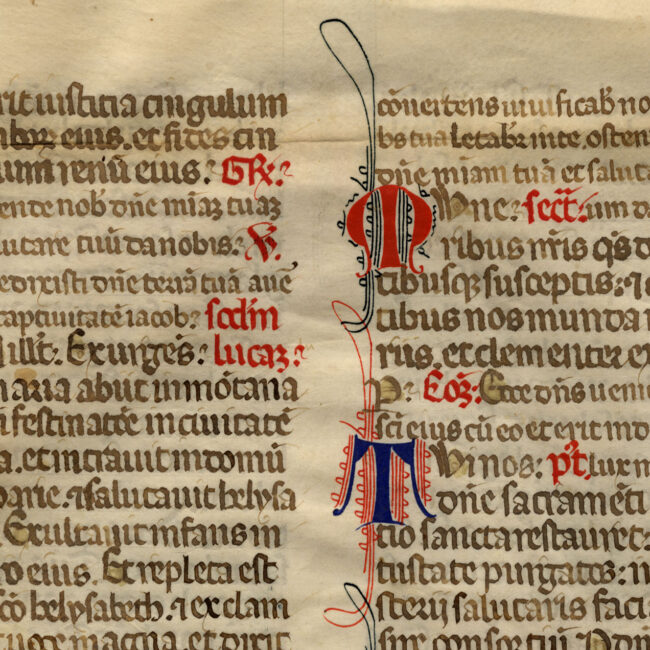 rit iusticia cingulum
bor eius. et fides cin
um renū eius. GR.
ende nob dñe miaꝫ tuaꝫ
lutare tuū da nobis. V.
edixisti dñe terrā tuā aūe
captiuitatē iacob. scdm
illt. Exurgēs. lucaꝫ.
maria abiit in mōtana
festinatōe in ciuitatē
a. et intrauit in domū
arie. ⁊ salutauit helysa
Exultauit infans in
o eius. Et repleta est
scō helysabeth. ⁊ exclam
uoce magna. et dixit
cōuertens uiuificab no
bs tua letabr in te. osten
dñe miam tuā et saluta
Mune. secr. um da
ribus nr̄is qs d
tibusq susceptis. ⁊
tibus nos munda
riis. et clementer ex
P. Cō. Ecce dñs ueni
sci eius cū eo et erit in d
T ui nos. pt. lux m
dñe sacramēti
tio sancta restauret.
tustate purgatos. in
sterij salutaris faci
sire consortiū. P dñ